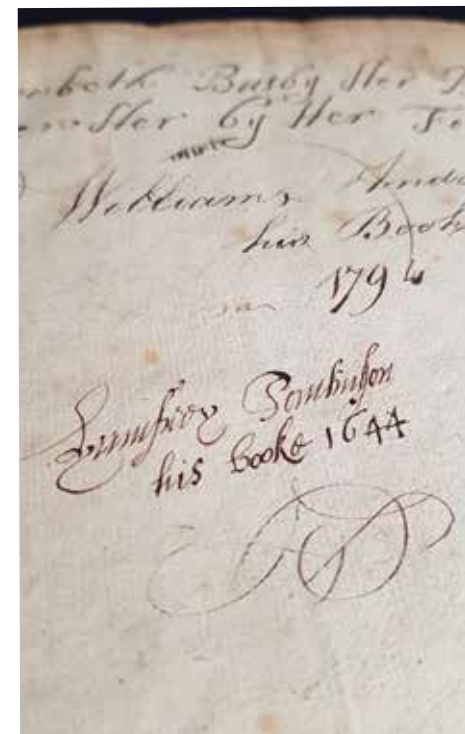 beth Busby Her
Her by Her
William
his Book
1794
Humfrey Tomlinson
his booke 1644